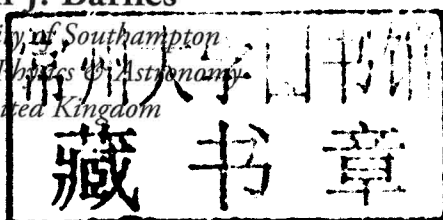 J. Barnes
ity of Southampton
Physics & Astronomy
ited Kingdom
常州大学图书馆
藏书章